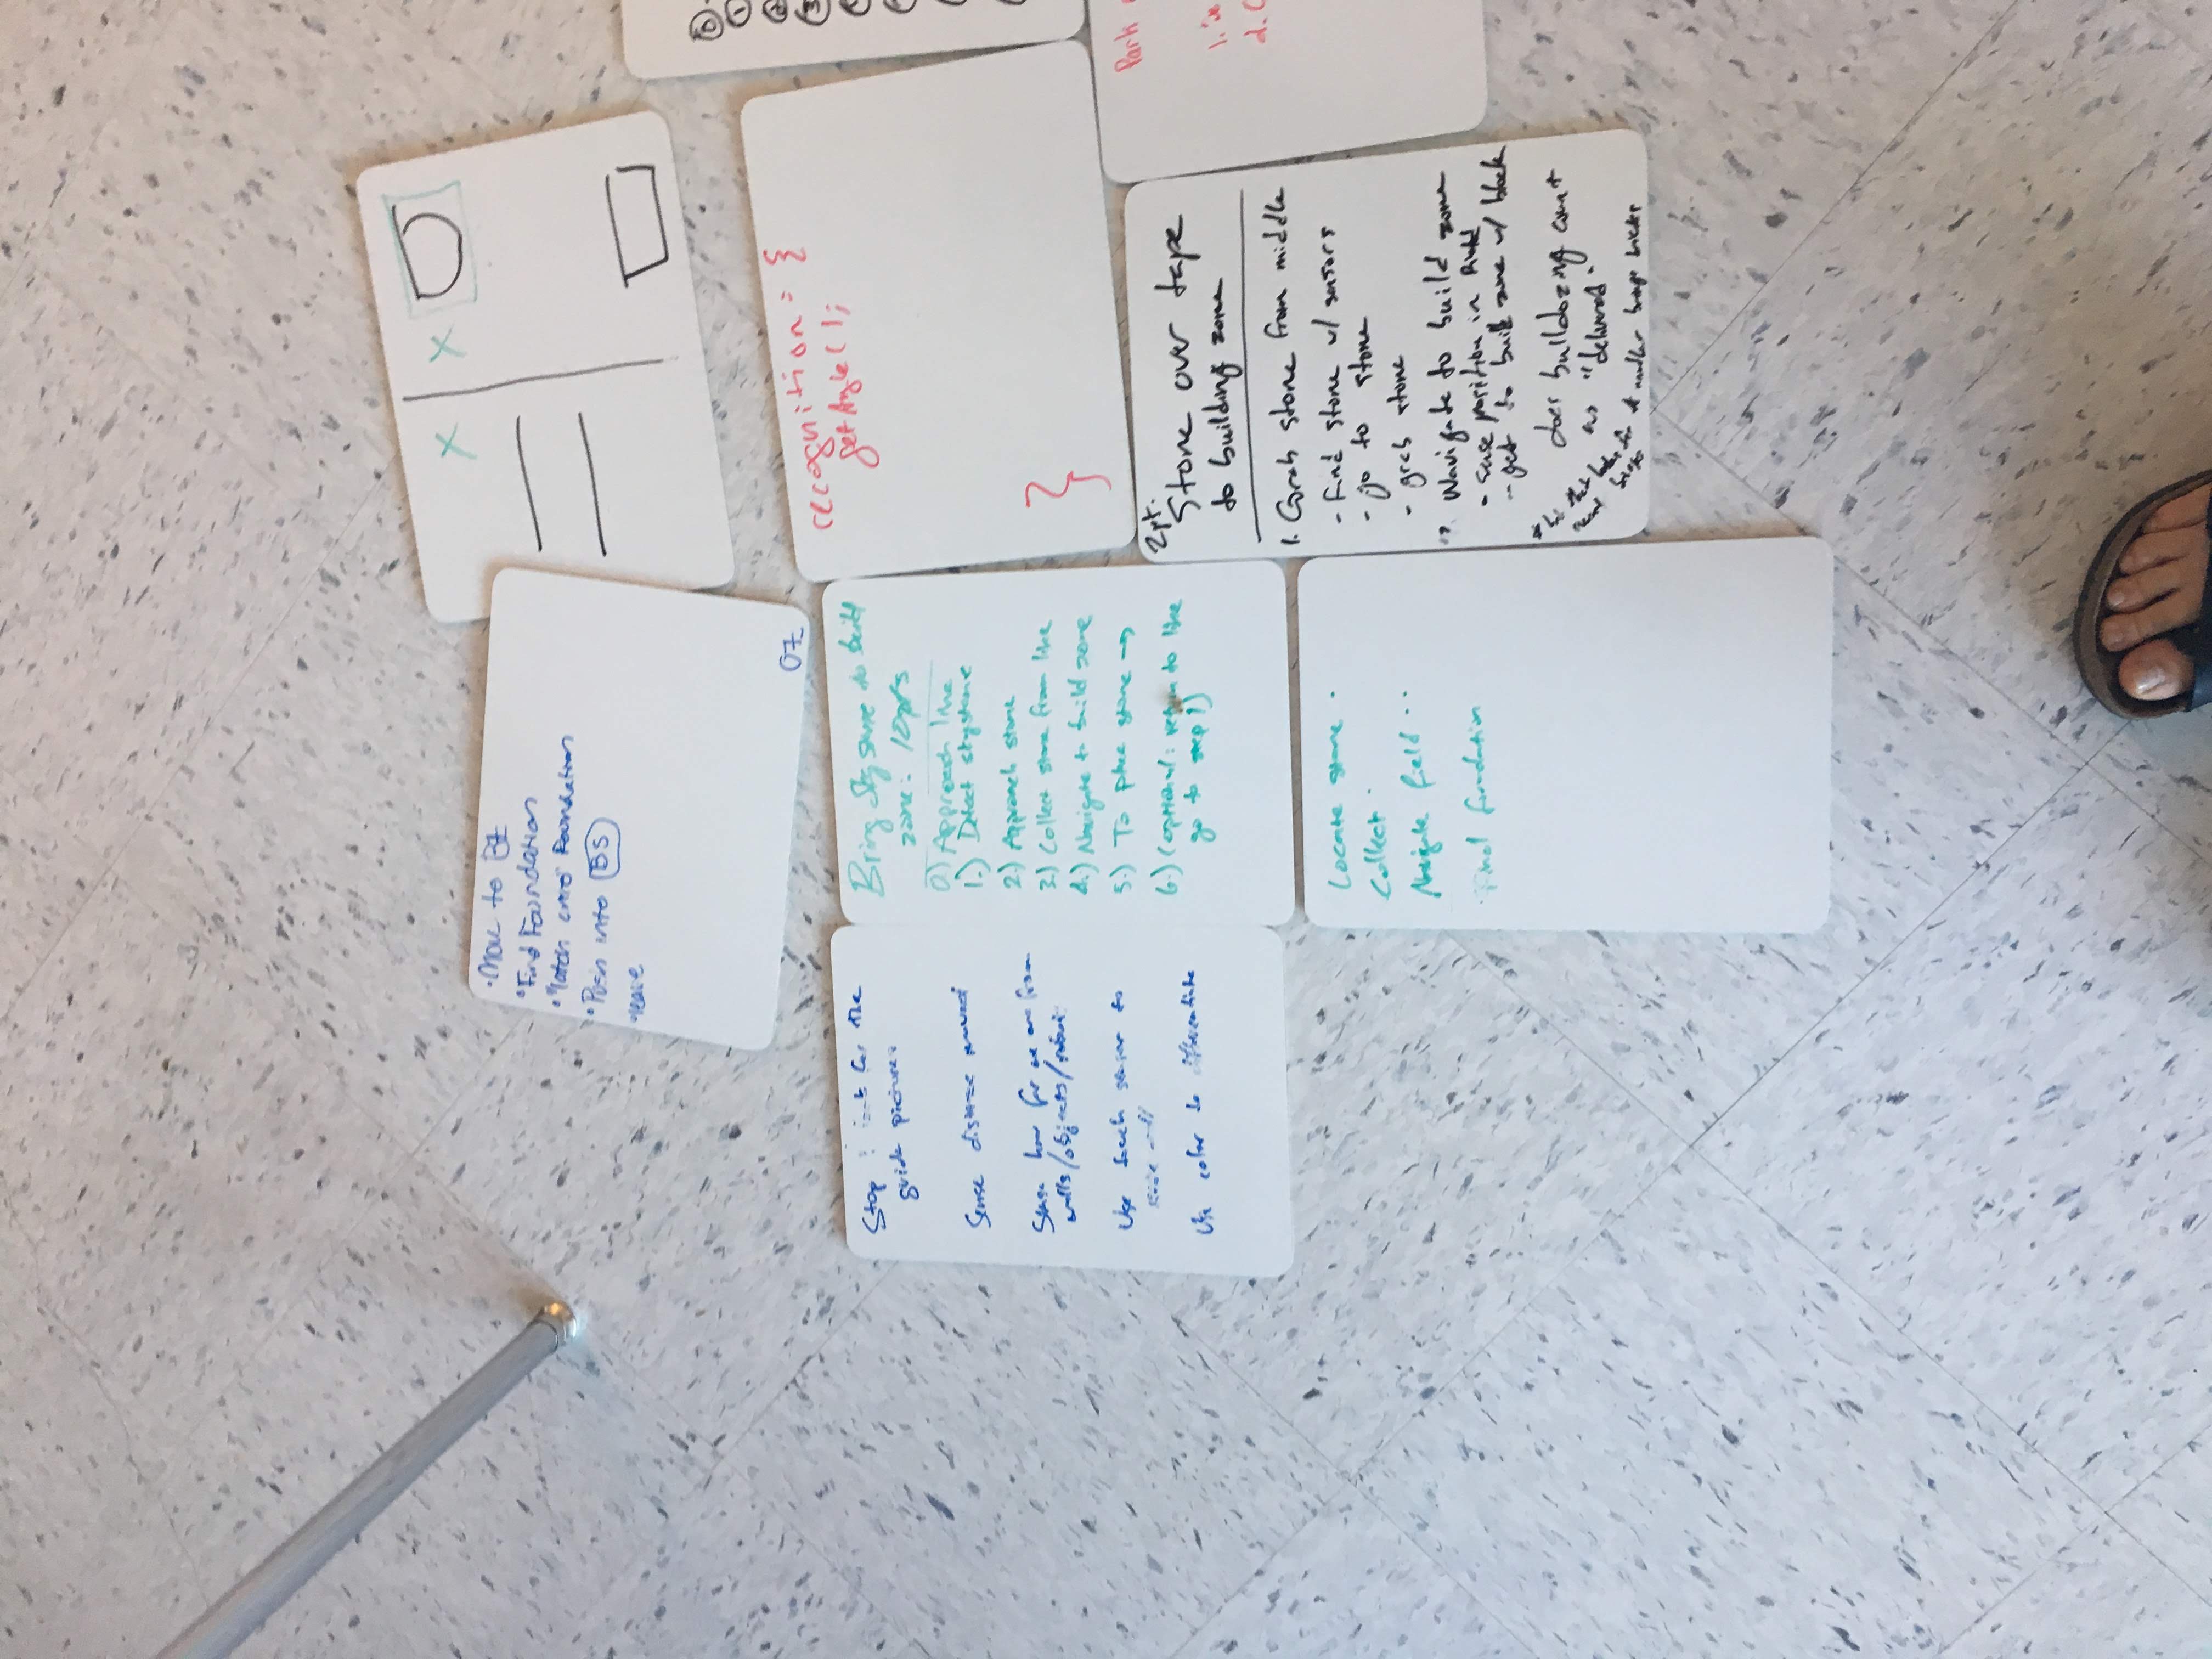 •Move to BZ
•Find Foundation
•latch onto Foundation
•Push into BS
•leave
OZ
recognition = {
getAngle();
}
Stop for the
guide pictures
Sense distance moved
Sense how far we are from
walls/objects/robot
Use touch sensor to
Use color to differentiate
Bring Skystone to build
zone: 10pts
0.) Approach line
1.) Detect skystone
2.) Approach stone
3.) Collect stone from line
4.) Navigate to build zone
5.) To place stone →
6.) (optional: return to line
go to step 1)
Locate stone .
Collect .
Navigate field ..
Find foundation
2pt.
Stone over tape
to building zone
1. Grab stone from middle
- Find stone w/ sensors
- go to stone
- grab stone
Navigate to build zone
- sense position in field
- get to build zone w/ block
does bulldozing count
as "delivered"
brings bricks
0
1
2
3
Park
1.
2.